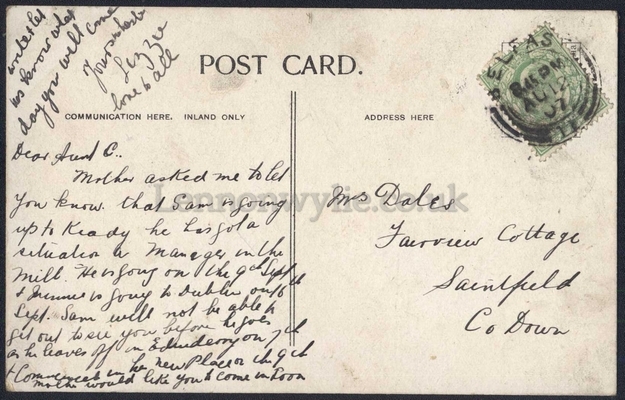 POST CARD.
COMMUNICATION HERE. INLAND ONLY
ADDRESS HERE
BELFAST
8.15 PM
AU 12
07
Dear Aunt C.,
Mother asked me to let
you know that Sam is going
up to Keady he has got a
situation as Manager in the
Mill. He is going on the 9th Sept
& Minnie is going to Dublin on 6th
Sept. Sam will not be able to
get out to see you before he goes
as he leaves off in on 7th
& Commences in his new Place on the 9th
Mother would like you to come in soon
write & let
us know what
day you will come
Lizzie
love to all
Mrs Dales
Fairview Cottage
Saintfield
Co Down
Lennonwylie.co.uk